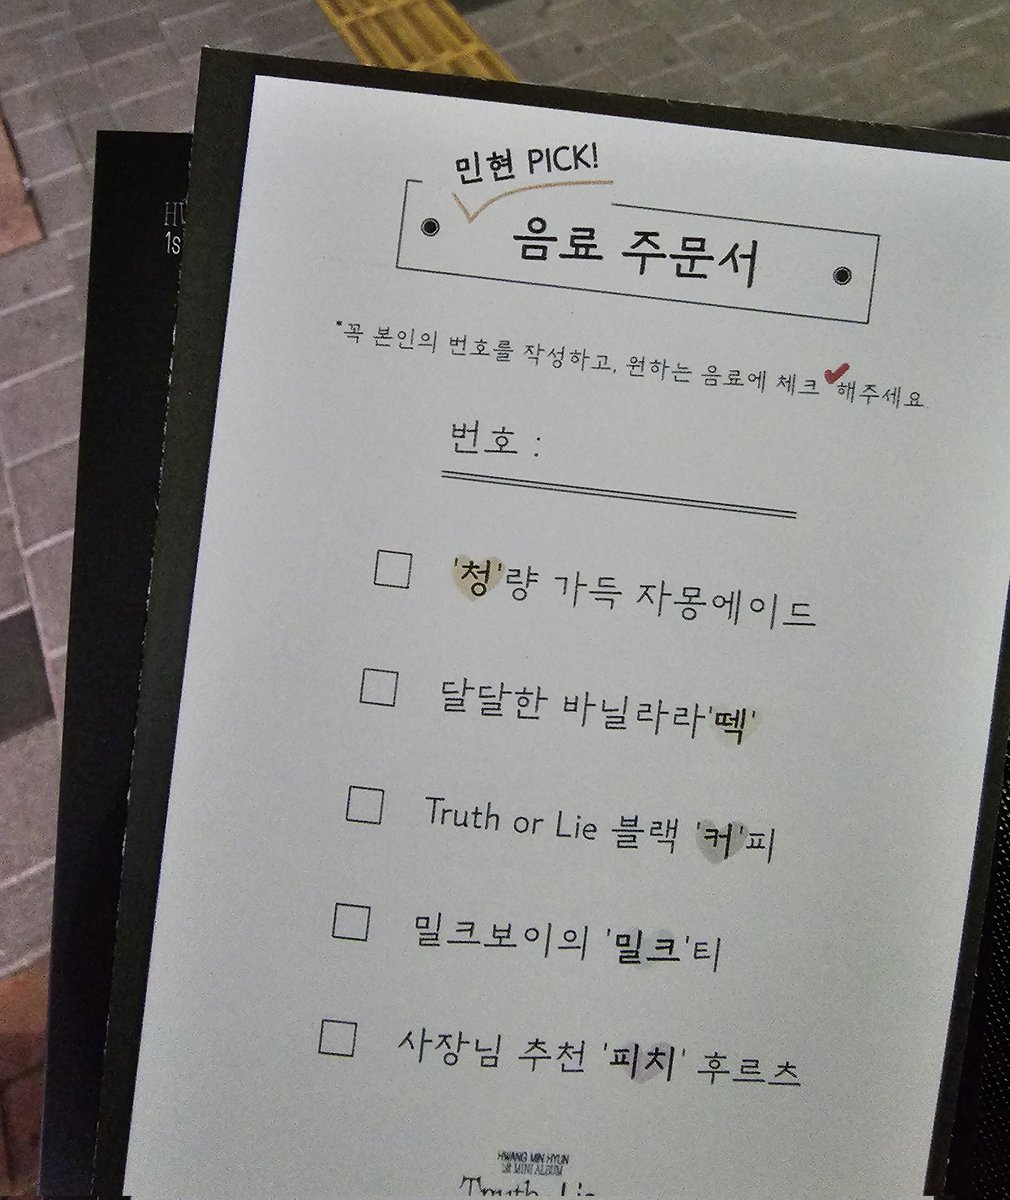 민현 PICK!
음료 주문서
*꼭 본인의 번호를 작성하고, 원하는 음료에 체크 해주세요.
번호 :
'청'량 가득 자몽에이드
달달한 바닐라라'떽'
Truth or Lie 블랙 '커'피
밀크보이의 '밀크'티
사장님 추천 '피치' 후르츠
HWANG MIN HYUN
1st MINI ALBUM